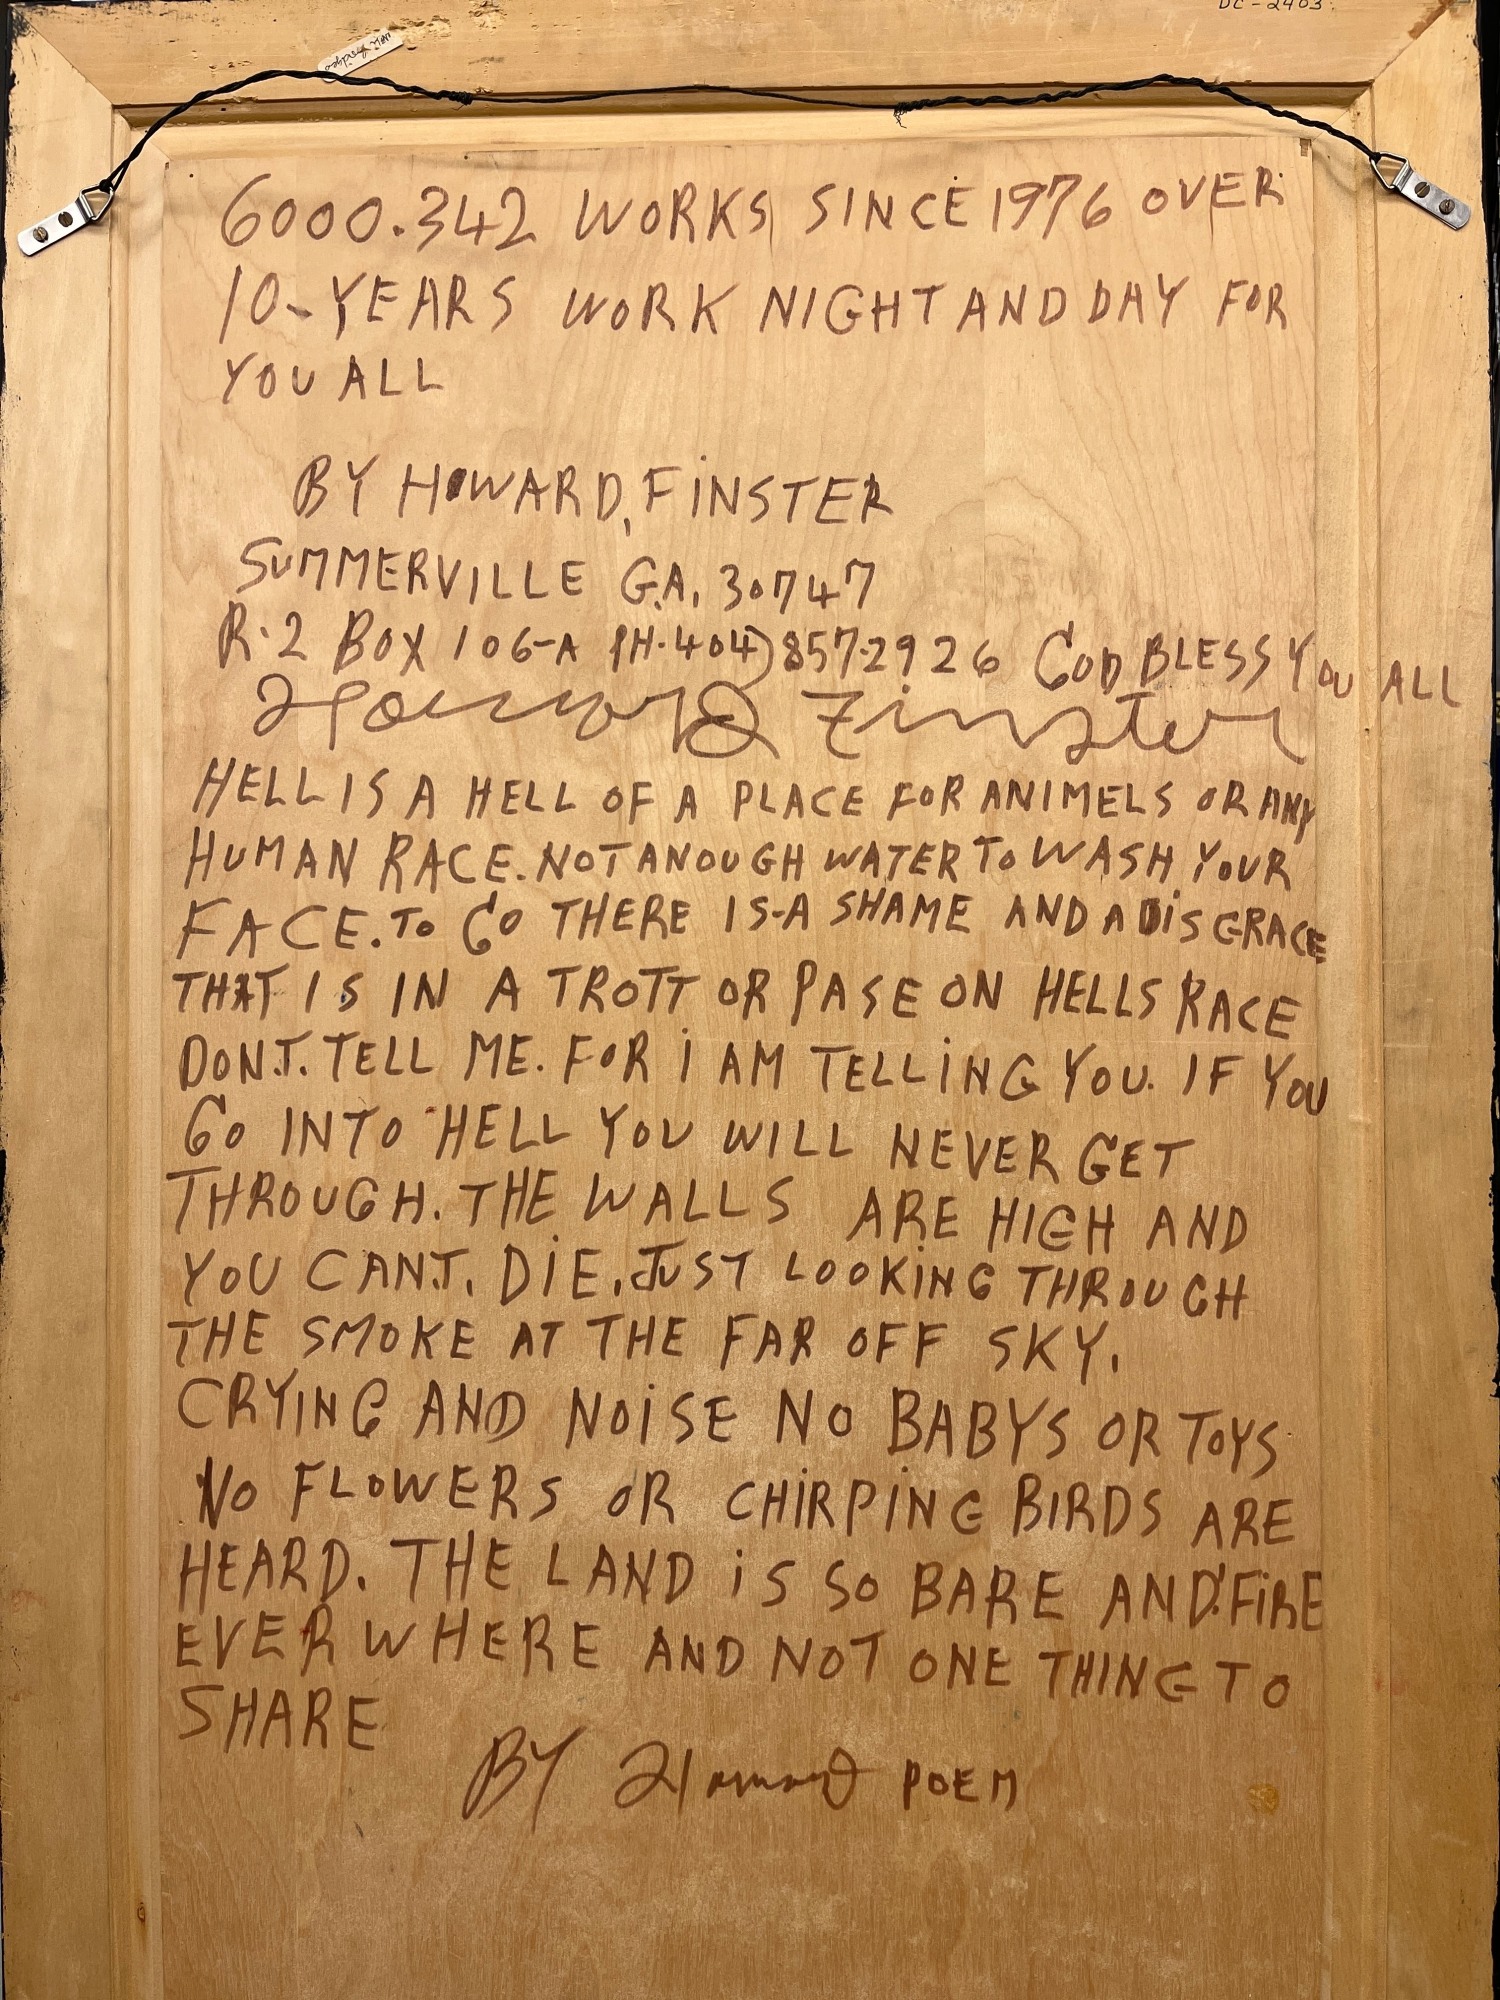 DC-2403.
6000.342 WORKS SINCE 1976 OVER
10-YEARS WORK NIGHT AND DAY FOR
YOU ALL
BY HOWARD, FINSTER
SUMMERVILLE GA. 30747
R.2 BOX 106-A PH.404)857-2926 GOD BLESS YOU ALL
Howard Finster
HELL IS A HELL OF A PLACE FOR ANIMELS OR ANY
HUMAN RACE. NOT ANOUGH WATER TO WASH YOUR
FACE. TO GO THERE IS-A SHAME AND A DISGRACE
THAT IS IN A TROTT OR PASE ON HELLS RACE
DON.T. TELL ME. FOR i AM TELLING YOU. IF YOU
GO INTO HELL YOU WILL NEVER GET
THROUGH. THE WALLS ARE HIGH AND
YOU CAN.T. DIE. JUST LOOKING THROUGH
THE SMOKE AT THE FAR OFF SKY.
CRYING AND NOISE NO BABYS OR TOYS
NO FLOWERS OR CHIRPING BIRDS ARE
HEARD. THE LAND IS SO BARE AND FIRE
EVER WHERE AND NOT ONE THING TO
SHARE
BY Howard POEM